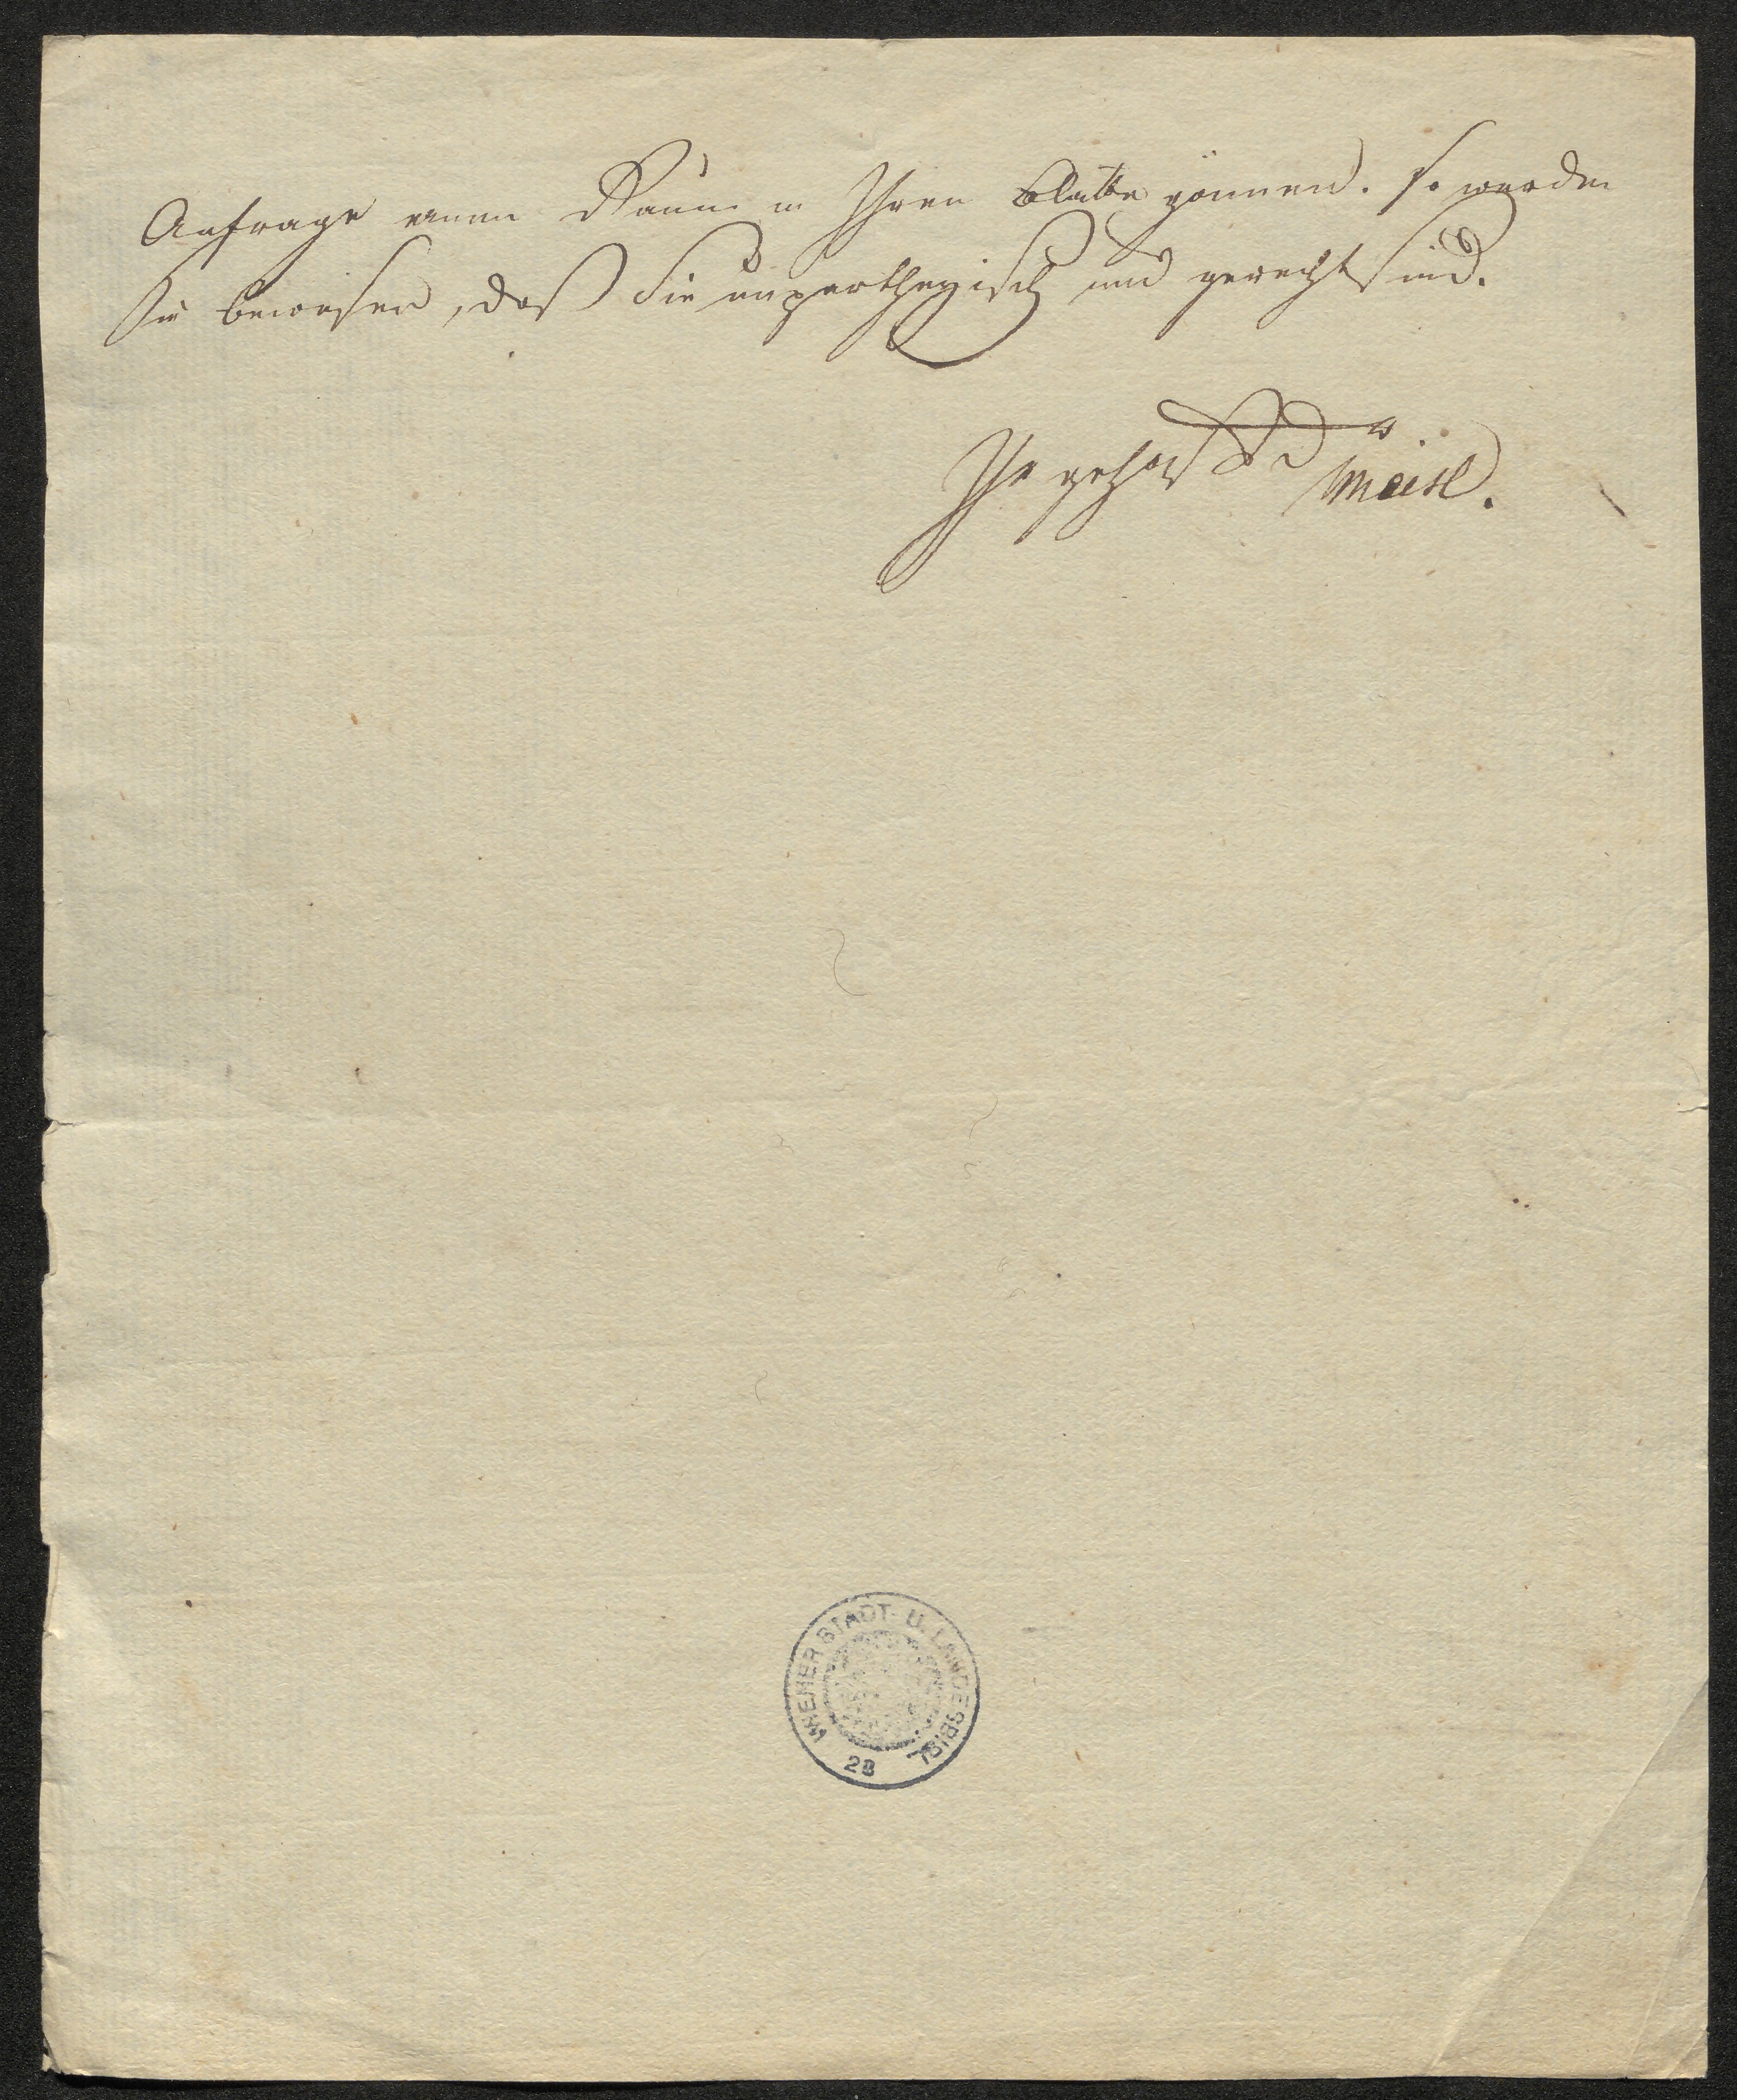 Anfrage einen Raum in Ihren Blatte gönnen. so werden
Sie beweisen, daß Sie unpartheyisch und gerecht sind.
Ihr gehors
Meisl.
WIENER STADT- U. LANDESBIBL.
28